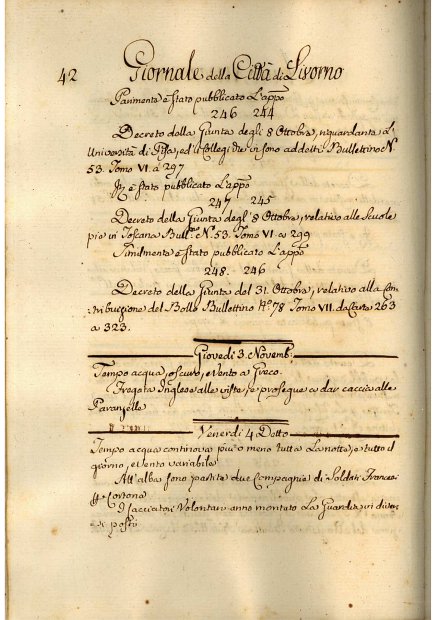 42 Giornale della Città di Livorno
Parimente è stato pubblicato L'app.o
246 244
Decreto della Giunta degli 8 Ottobre, riguardante l'
Università di Pisa, ed i Collegi che vi sono addetti Bullettino N.
53. Tomo VI. a 297
It. è stato pubblicato L'app.o
247 245
Decreto della Giunta degl' 8 Ottobre, relativo alle Scuole
pie in Toscana Bull. N. 53. Tomo VI. a 299
Similmente è stato pubblicato L'app.o
248. 246
Decreto della Giunta del 31. Ottobre, relativo alla Con
tribuzione del Bollo Bullettino N.o 78 Tomo VII. da Carte 263
a 323.
Giovedi 3. Novemb.
Tempo acqua, oscuro, e Vento a Greco.
Fregata Inglese alle viste, e prosegue a dar caccia alle
Paranzelle
Venerdi 4 Detto
Tempo acqua continova più o meno tutta La notte, e tutto il
giorno, e Vento variabile
All'alba sono partite due Compagnie di Soldati Francesi
Cortona
I Cacciatori Volontari anno montato La Guardia, in diver
si posti